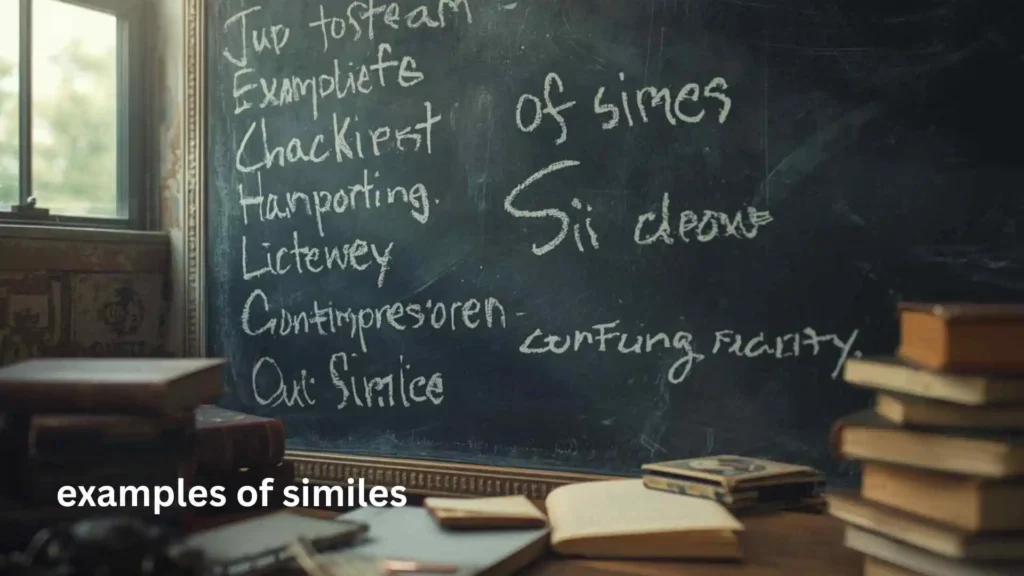 Jup tosteam -
Exampliets
Chackiprst
Hanporting.
Lictewey
Contimpresoren -
Out Simlice
of simes
Sii deowe
conFung Fearity.
examples of similes